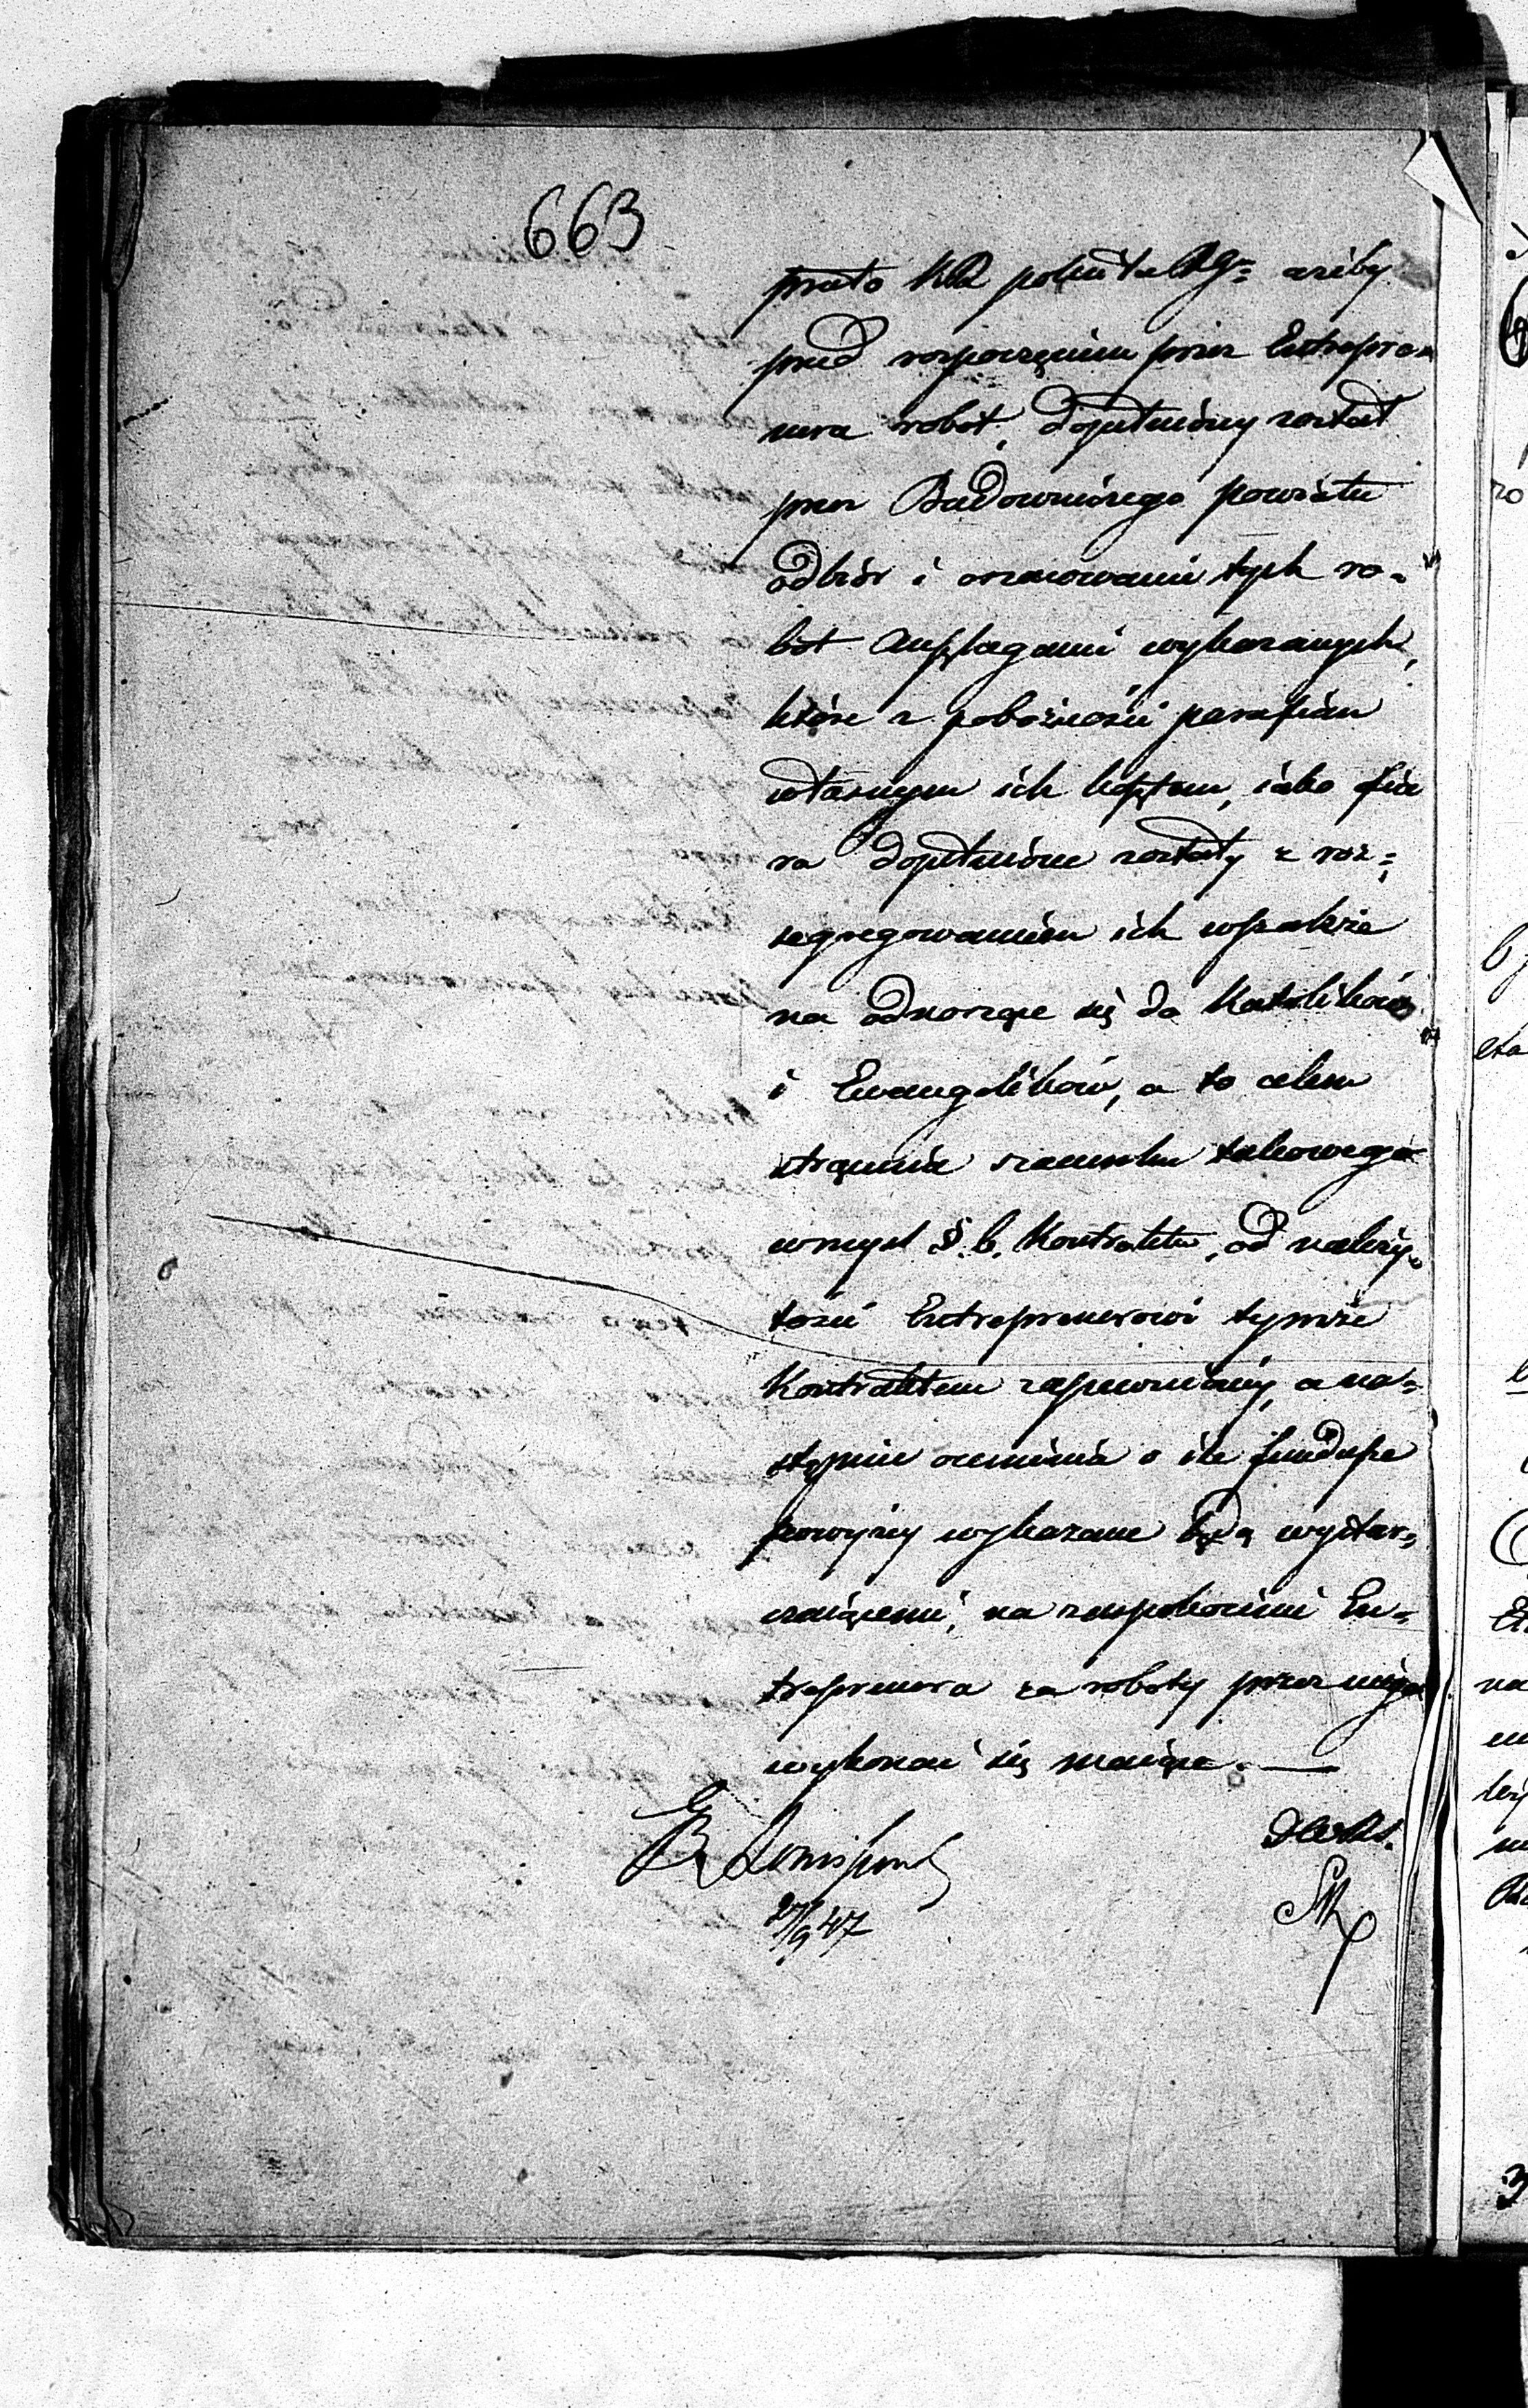 663
przeto KR poleca RG= ażeby
przed rozpoczęciem przez Entrepre=
nera robot, dopełniony został
przez Budowniczego powiatu
odbiór i oszacowanie tych ro=
bot anszlagami wykazanych,
które z pobożności parafian
własnym ich kosztem, iako ofia
ra dopełnione zostały z roz=
segregowaniem ich wszakże
na odnoszące się do Katolików
i Ewangelików, a to celem
strącenia szacunku takowego
wmysl §. 6. Kontraktu, od należy=
tości Entreprenerowi tymże
Kontraktem zapewnioney, a na=
stępnie ocenienia o ile fundusze
powyżey wykazane będą wystar=
czaiącemi, na zaspokoienie En=
treprenera za roboty przez niego
wykonać się maiące. —
27/9 47